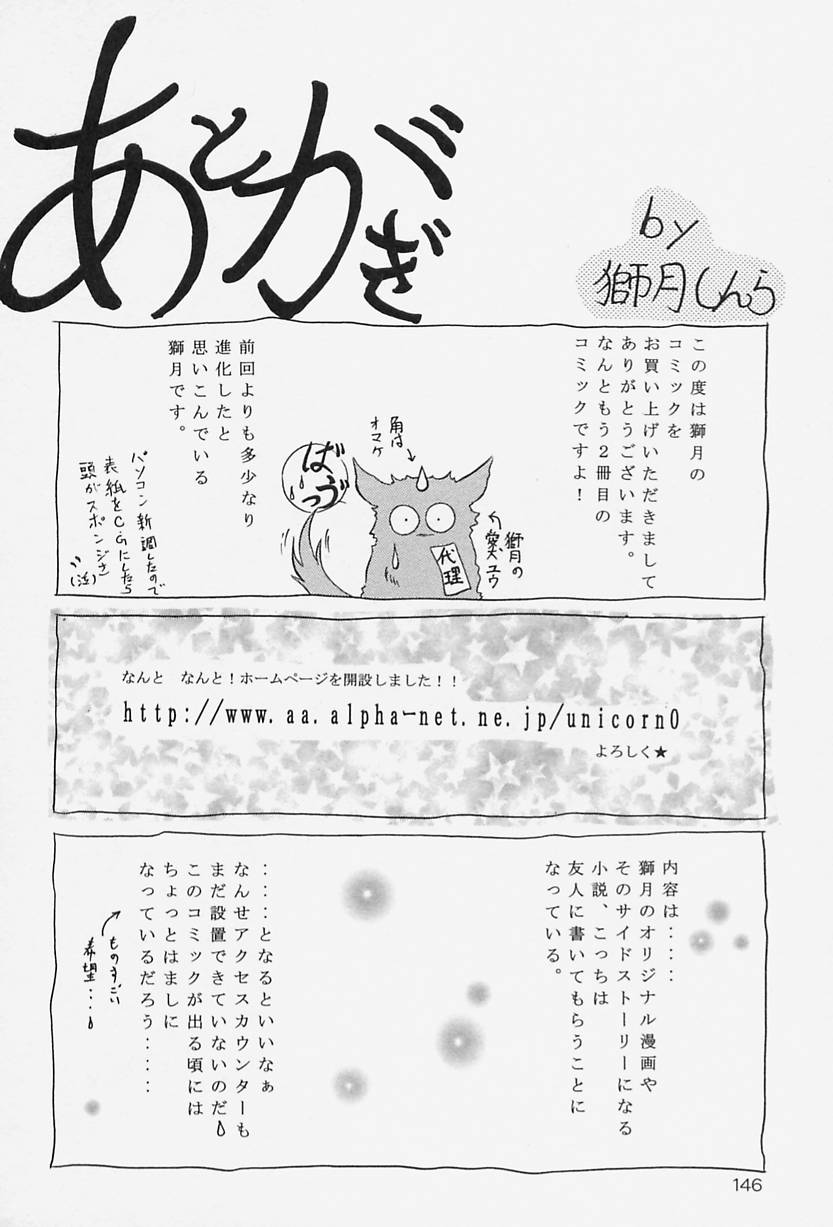 あとガぎ
by
獅月しんら
この度は獅月の
コミックを
お買い上げいただきまして
ありがとうございます。
なんともう２冊目の
コミックですよ！
獅月の
愛犬ユウ
角は
オマケ
代理
ばうっ
前回よりも多少なり
進化したと
思いこんでいる
獅月です。
パソコン新調したので
表紙をC.Gにしたら
頭がスポンジさ
(泣)
なんと　なんと！ホームページを開設しました！！
http://www.aa.alpha-net.ne.jp/unicorn0
よろしく★
内容は‥‥
獅月のオリジナル漫画や
そのサイドストーリーになる
小説、こっちは
友人に書いてもらうことに
なっている。
‥‥となるといいなぁ
なんせアクセスカウンターも
まだ設置できていないのだ
このコミックが出る頃には
ちょっとはましに
なっているだろう‥‥
ものすごい
希望・・・
146